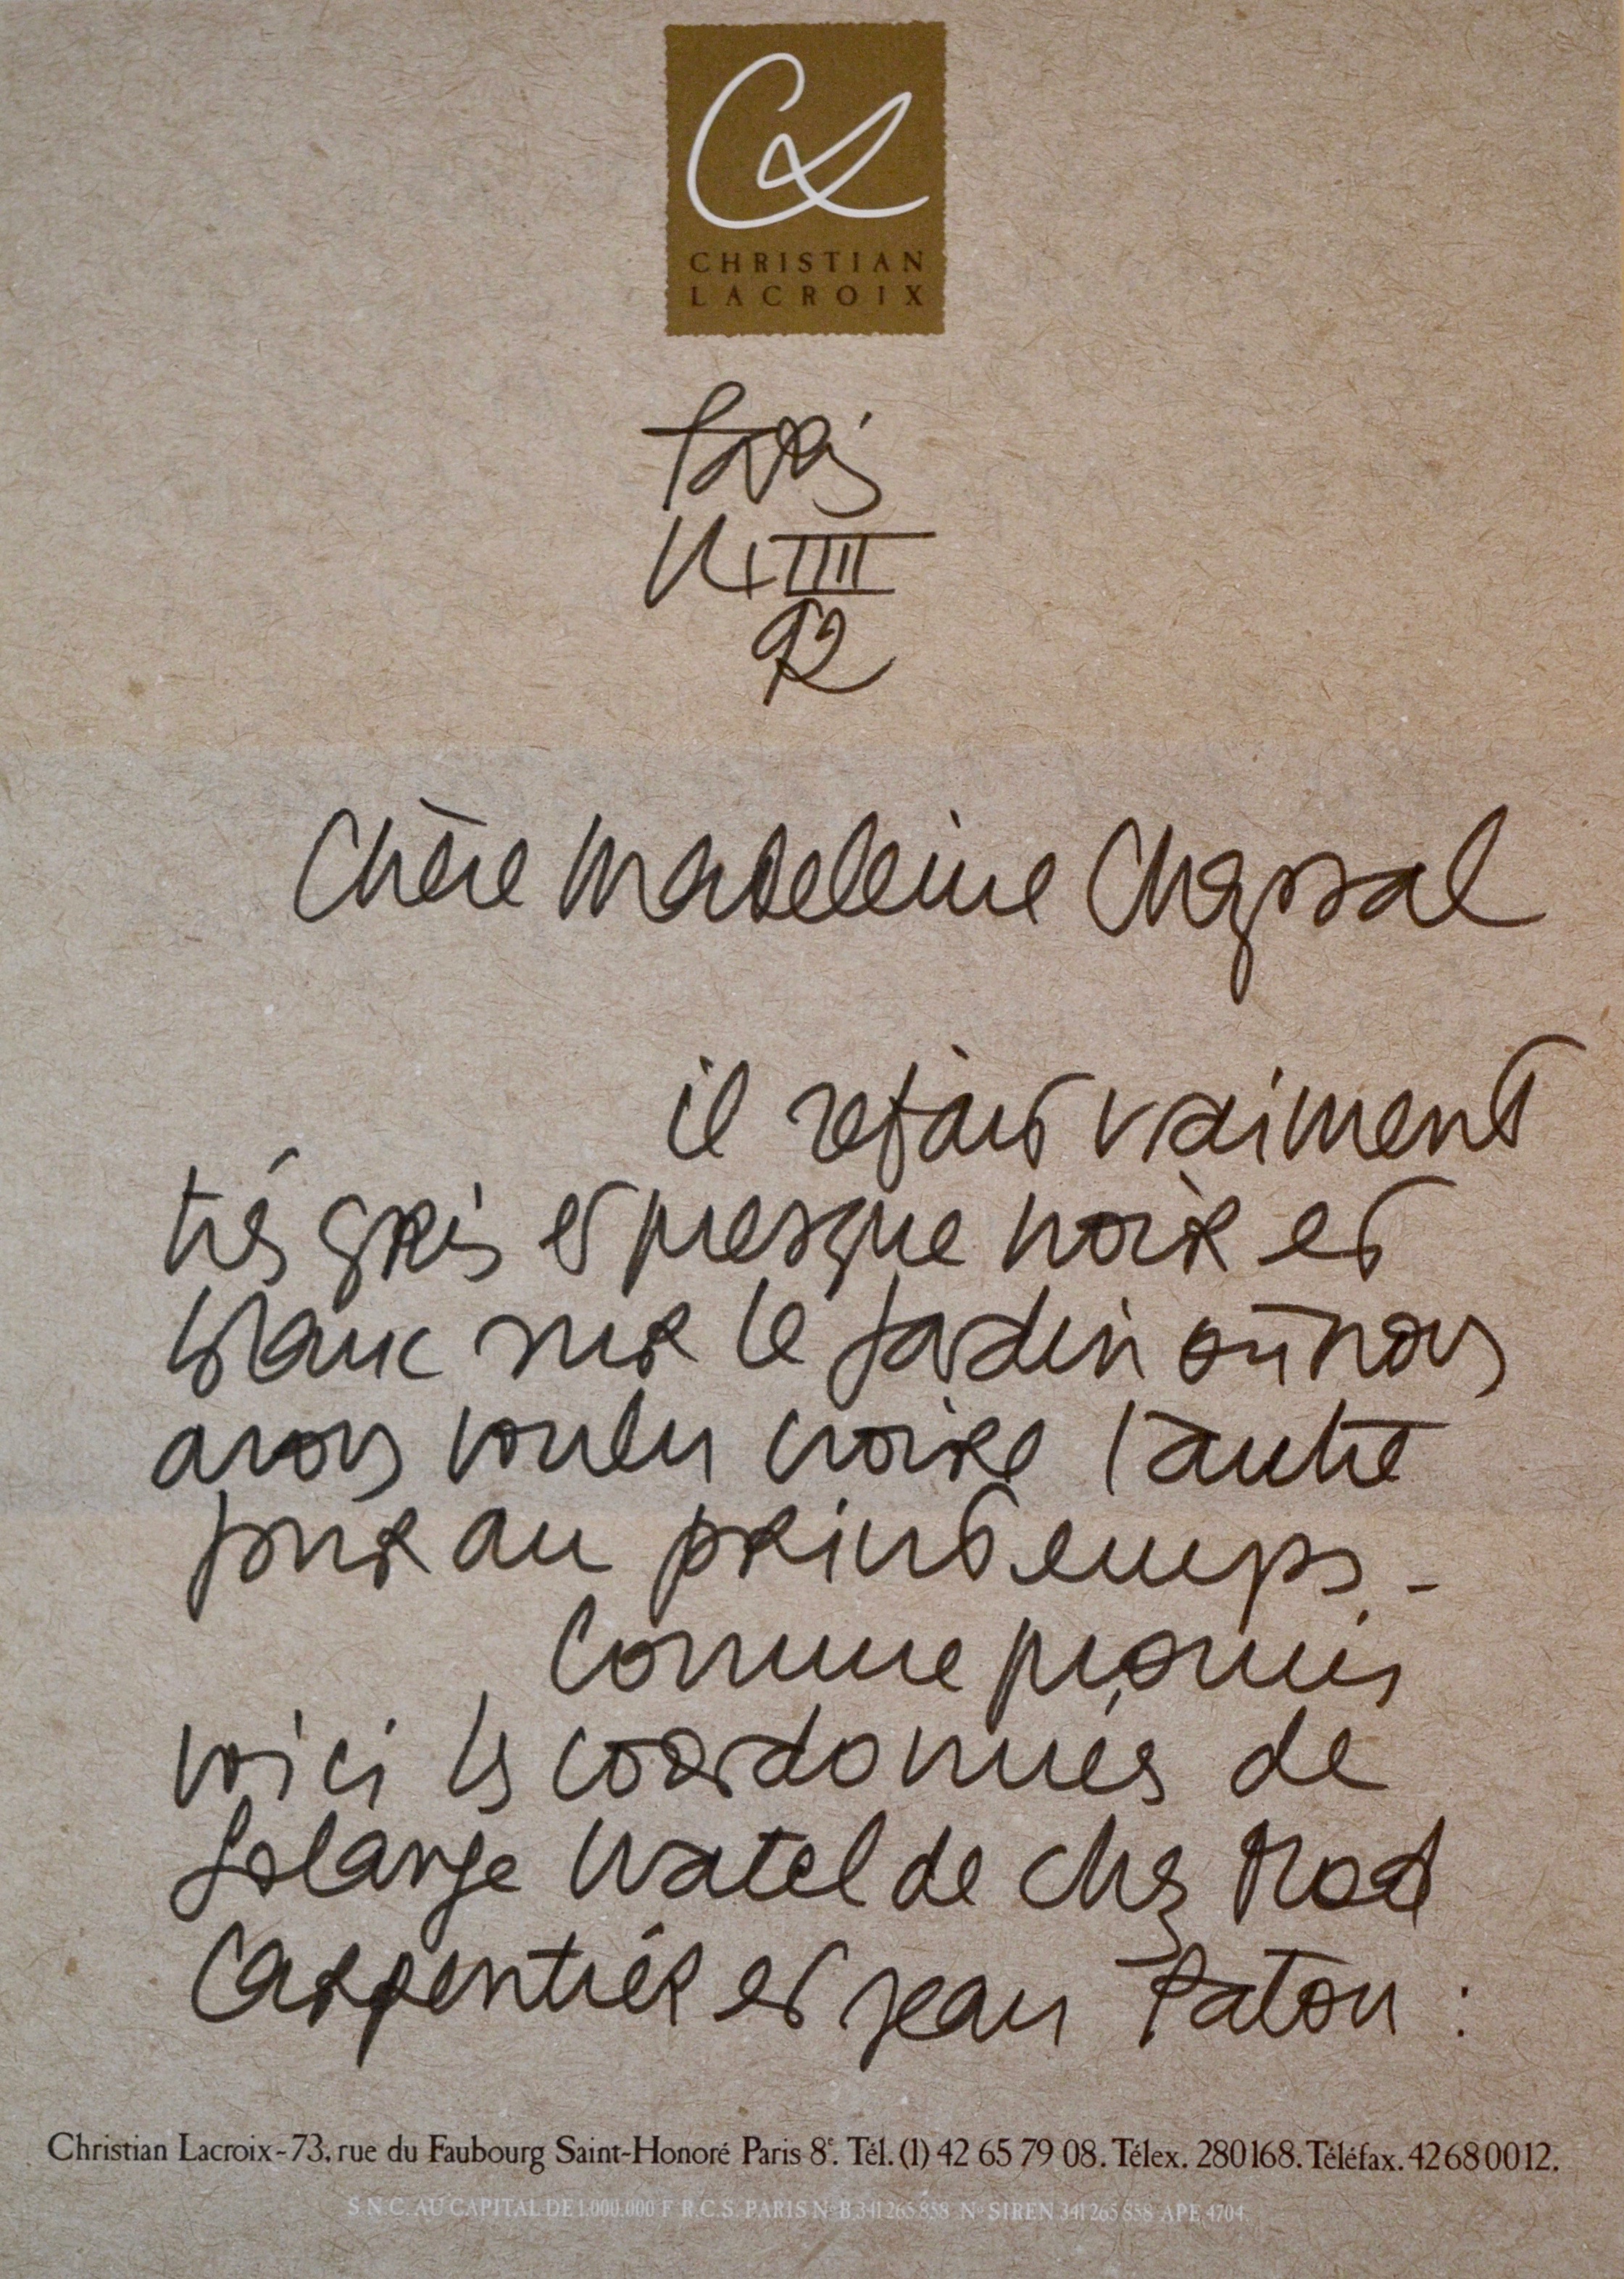 CHRISTIAN
LACROIX
Paris
IIII
92
Chère Madeleine Chapsal
il refait vraiment
très gris et presque noir et
blanc sur le jardin où nous
avons voulu croire l'autre
jour au printemps -
Comme promis
voici les coordonnées de
Solange Watel de chez Mad
Carpentier et Jean Patou :
Christian Lacroix - 73, rue du Faubourg Saint-Honoré Paris 8e. Tél. (1) 42 65 79 08. Télex. 280168. Téléfax. 42680012.
S.N.C. AU CAPITAL DE 1.000.000 F R.C.S. PARIS N° B 341 265 858 N° SIREN 341 265 858 APE 4704.